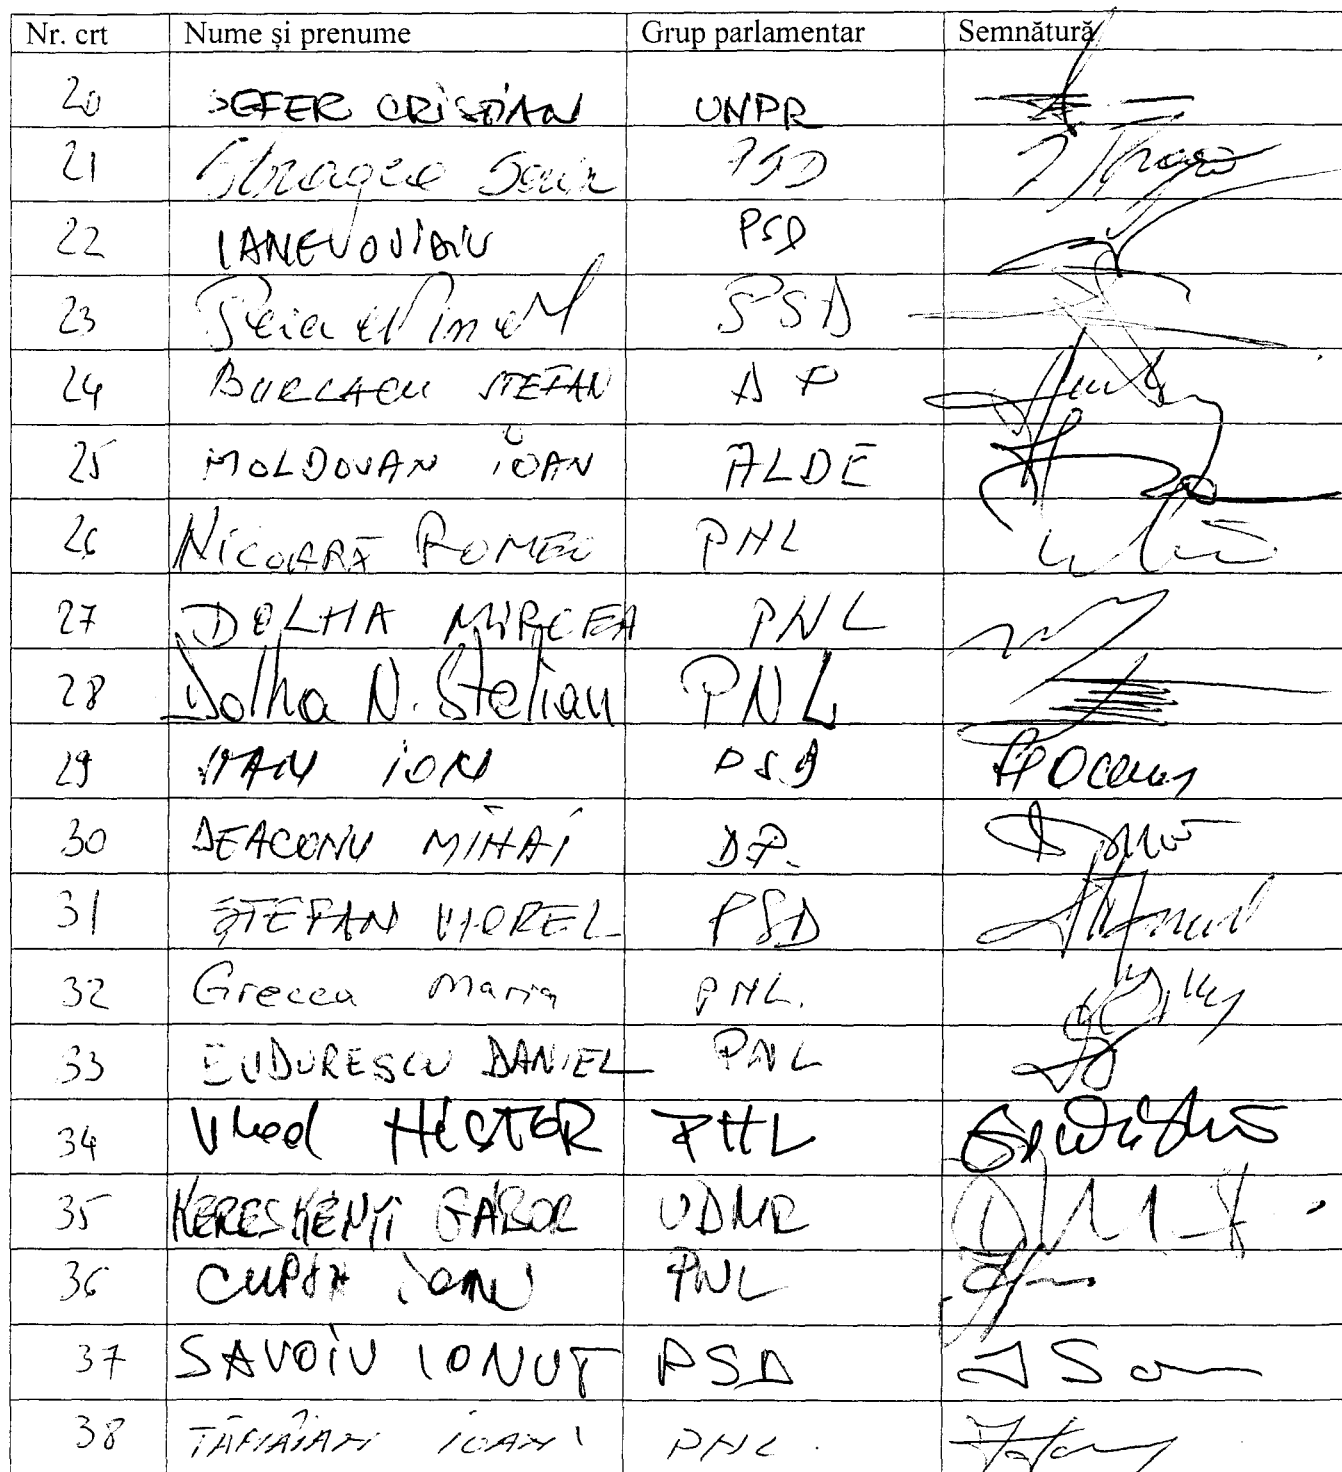 Nr. crt Nume și prenume Grup parlamentar Semnătură
20 SEFER CRISTIAN UNPR
21 PSD
22 IANE OVIDIU PSD
23 PSD
24 BURLACU STEFAN DP
25 MOLDOVAN IOAN ALDE
26 NICOARĂ ROMEO PNL
27 DOLHA MIRCEA PNL
28 Dolha N. Stelian PNL
29 STAN ION PSD
30 DEACONU MIHAI DP.
31 ȘTEFAN VIOREL PSD
32 Grecea Maria PNL.
33 BUDURESCU DANIEL PNL
34 Vlad NISTOR PNL
35 KERESKENYI GÁBOR UDMR
36 CUPȘA IOAN PNL
37 SAVOIU IONUT PSD
38 TĂMÂIAN IOAN PNL.